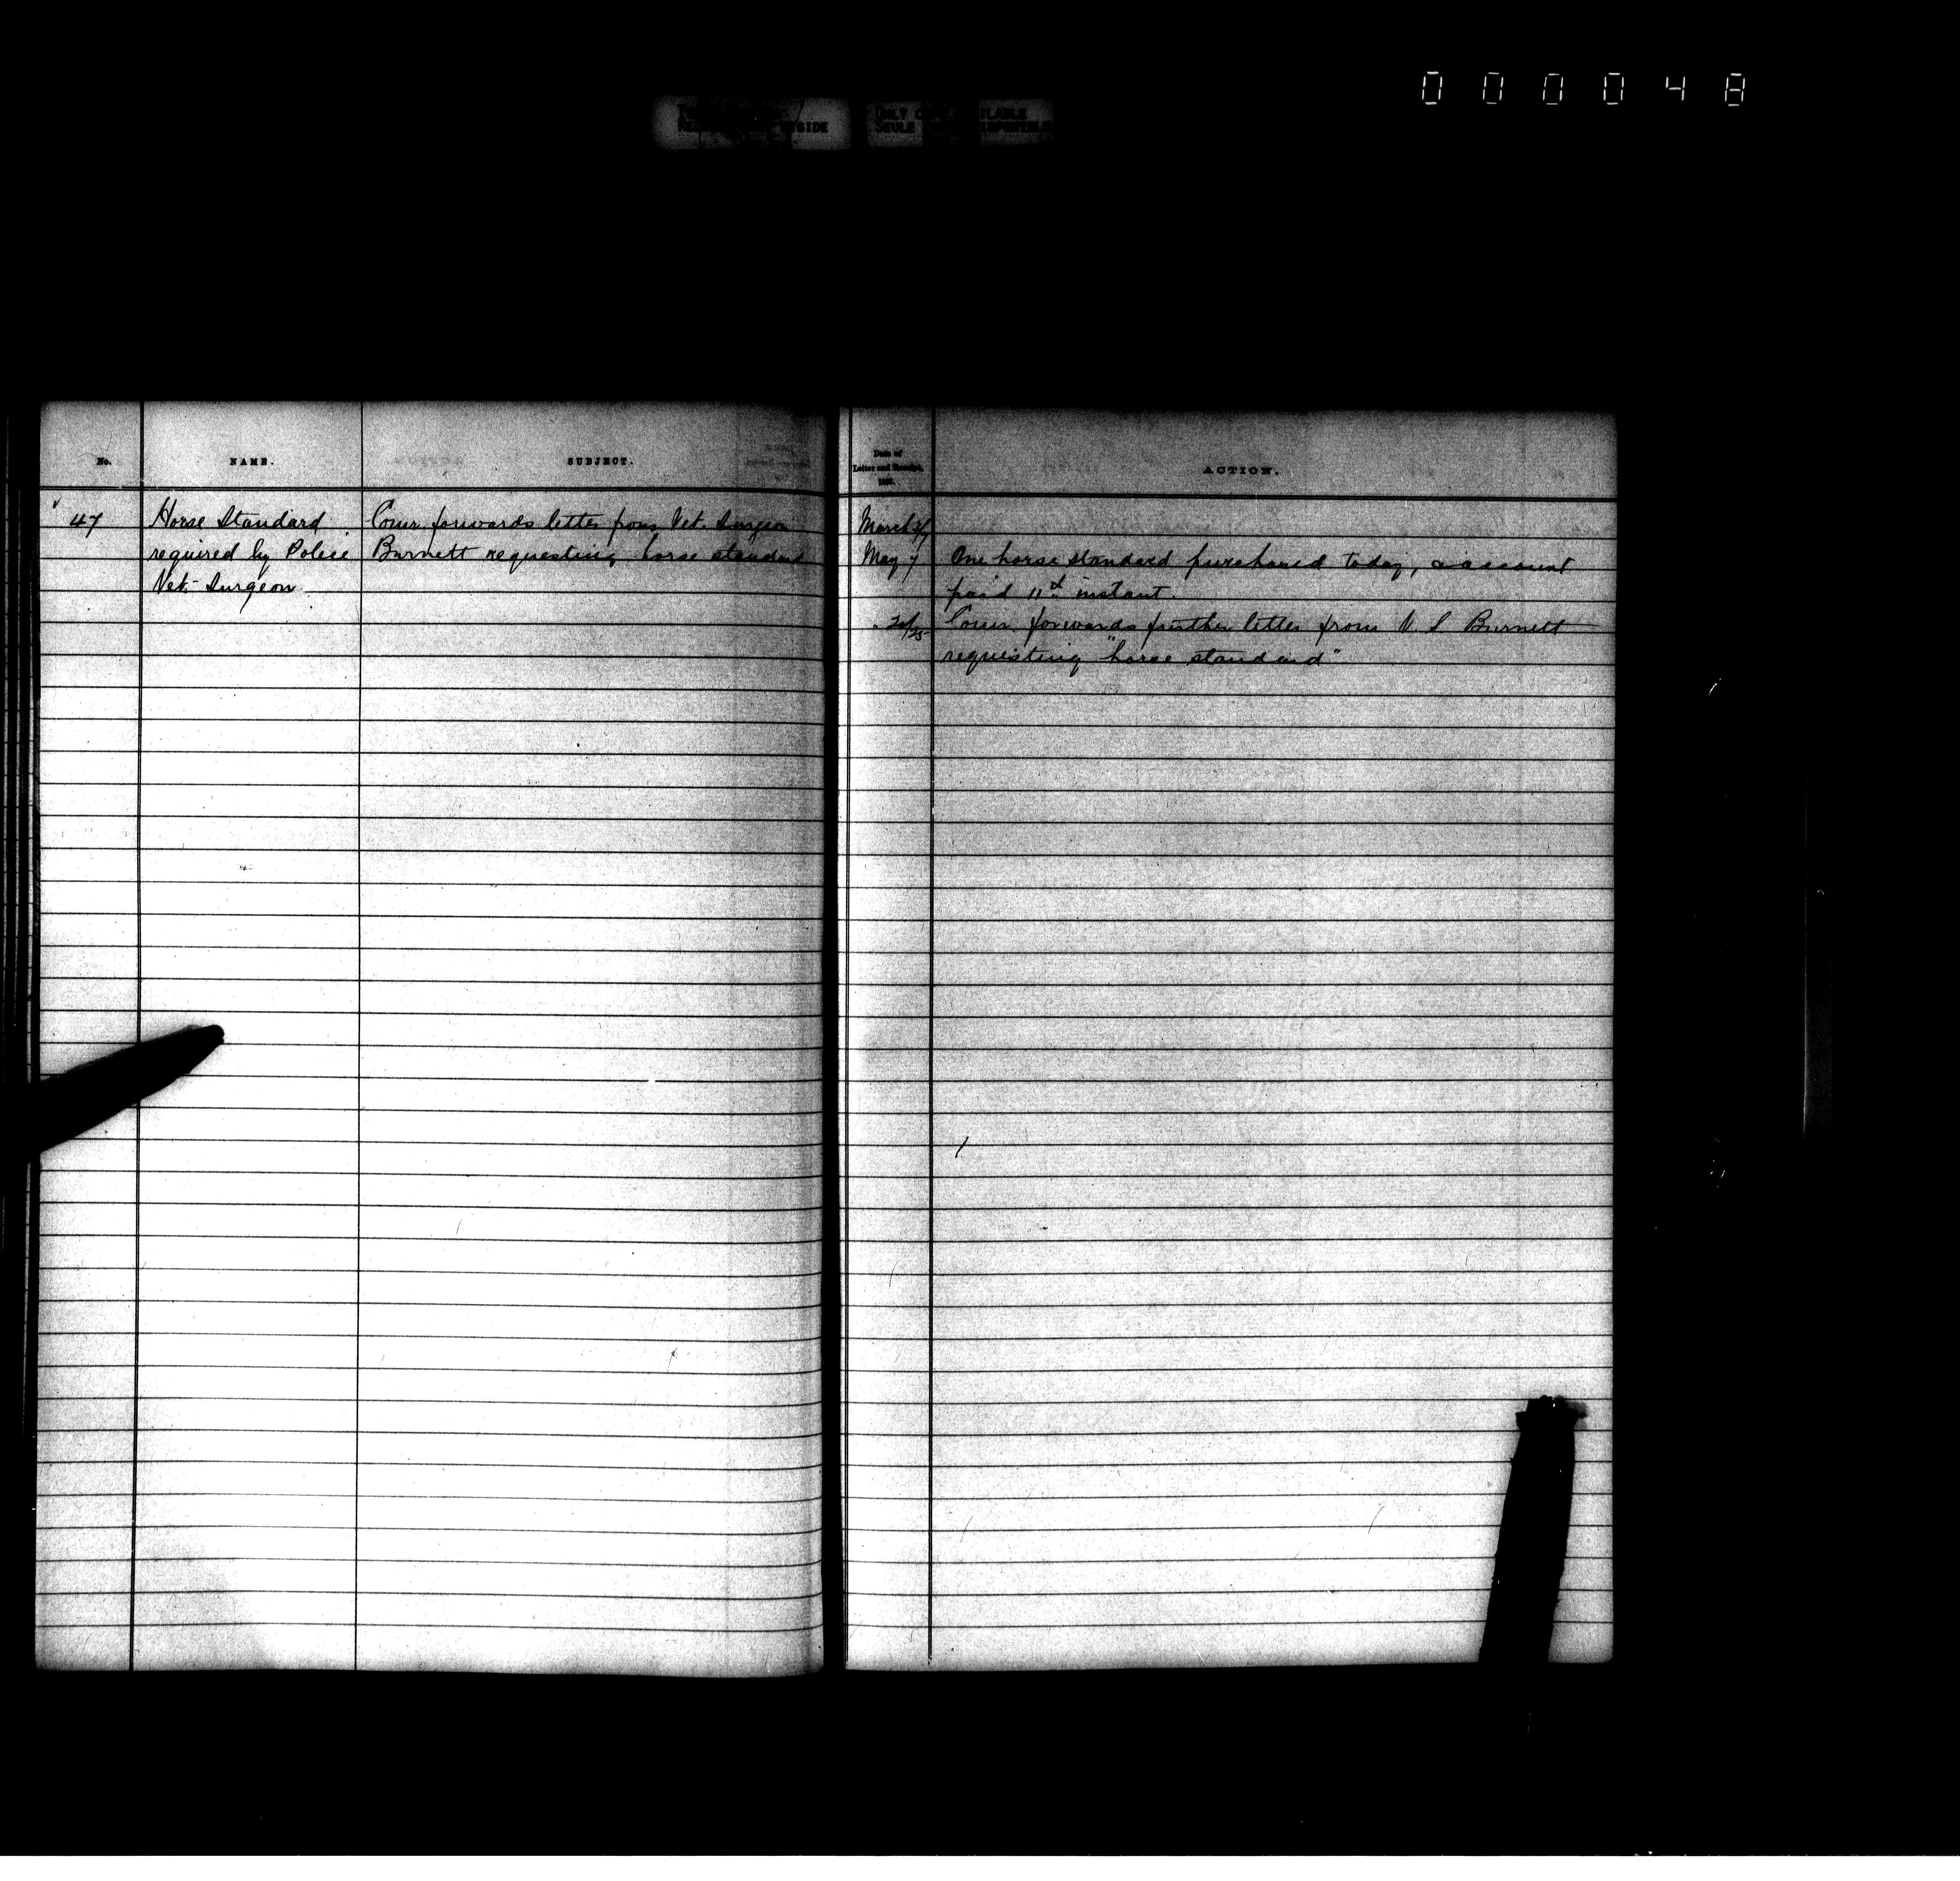 000048
ONLY
No. NAME. SUBJECT.
47 Horse Standard Comr. forwards letter from Vet. Surgeon
required by Police Burnett requesting horse standard
Vet. Surgeon
Date of
Letter and Receipt,
ACTION.
March
May 7 One horse standard purchased today, & account
paid 11th instant.
Comr. forwards further letter from V. S Burnett
requesting "horse standard"